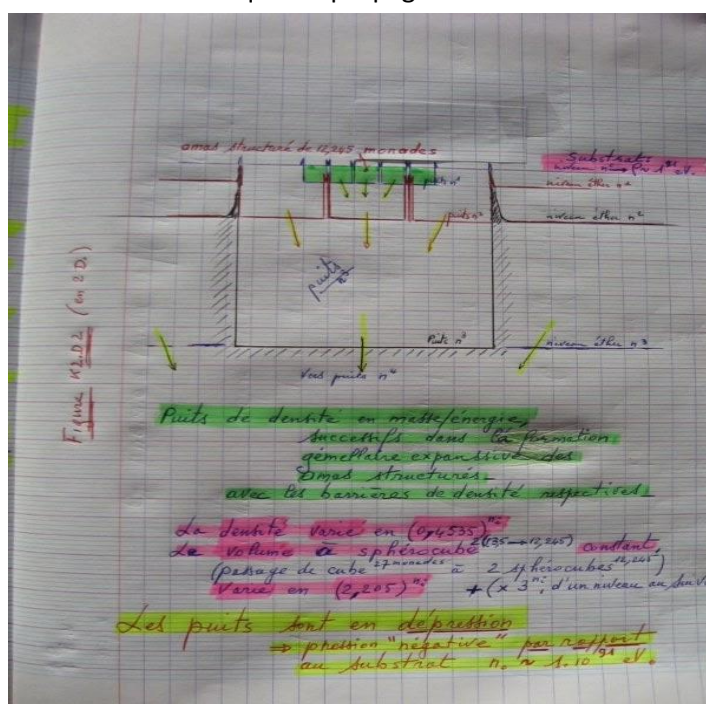 amas structuré de 12,245 monades
Substrat
niveau
puits n¹
niveau éther n¹
puits n²
niveau éther n²
puits n³
Puits n³
niveau éther n³
vers puits n⁴
Figure K2.D2 (en 2D.)
Puits de densité en masse/énergie,
successifs dans la formation
gémellaire expanssive des
amas structurés.
avec les barrières de densité respectives.
La densité varie en (0,4535)ⁿⁱ
Le volume à sphérocube constant,
(passage de cube 27 monades à 2 sphérocubes 12,245)
Varie en (2,205)ⁿⁱ + (x 3ⁿⁱ, d'un niveau au
Les puits sont en dépression
⇒ pression "négative" par rapport
au substrat n. ≈ 1.10⁹¹ eV.